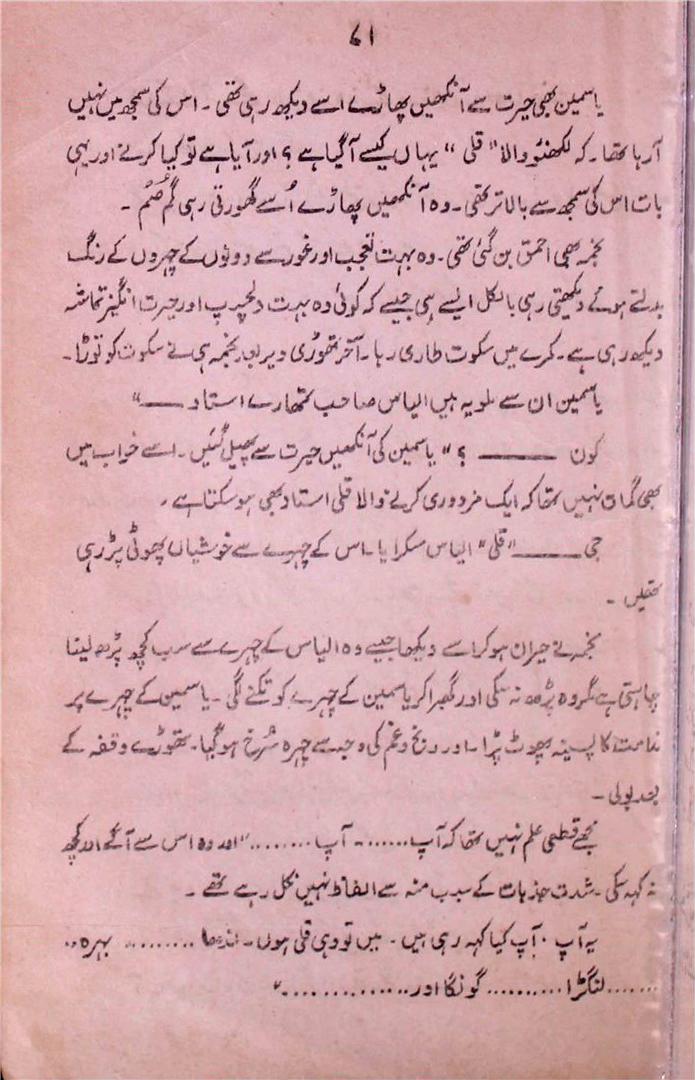 ۷۱
یاسمین بھی حیرت سے آنکھیں پھاڑے اسے دیکھ رہی تھی ۔ اس کی سمجھ میں نہیں
آرہا تھا۔ کہ لکھنؤ والا "قلی" یہاں کیسے آگیا ہے ؟ اور آیا ہے تو کیا کرنے اور یہی
بات اس کی سمجھ سے بالاتر تھی ۔ وہ آنکھیں پھاڑے اُسے گھورتی رہی گم صُم ۔
نجمہ بھی احمق بن گئی تھی ۔ وہ بہت تعجب اور غور سے دونوں کے چہروں کے رنگ
بدلتے ہوئے دیکھتی رہی بالکل ایسے ہی جیسے کہ کوئی وہ بہت دلچسپ اور حیرت انگیز تماشہ
دیکھ رہی ہے ۔ کمرے میں سکوت طاری رہا ۔ آخر تھوڑی دیر بعد نجمہ ہی نے سکوت کو توڑا ۔
یاسمین ان سے ملو یہ ہیں الیاس صاحب تمھارے استاد ——"
کون —— ؟" یاسمین کی آنکھیں حیرت سے پھیل گئیں ۔ اسے خواب میں
بھی گمان نہیں تھا کہ ایک مزدوری کرنے والا قلی استاد بھی ہو سکتا ہے ۔
جی —— "قلی" الیاس مسکرایا ۔ اس کے چہرے سے خوشیاں پھوٹی پڑ رہی
تھیں ۔
نجمہ نے حیران ہو کر اسے دیکھا جیسے وہ الیاس کے چہرے سے سب کچھ پڑھ لینا
چاہتی ہے مگر وہ پڑھ نہ سکی اور گھبرا کر یاسمین کے چہرے کو تکنے لگی ۔ یاسمین کے چہرے پر
ندامت کا پسینہ پھوٹ پڑا ۔ اور رنج و غم کی وجہ سے چہرہ سُرخ ہو گیا ۔ تھوڑے وقفہ کے
بعد بولی ۔
مجھے قطعی علم نہیں تھا کہ آپ ...... ۔ آپ ........" اور وہ اس سے آگے اور کچھ
نہ کہہ سکی ۔ شدت جذبات کے سبب منہ سے الفاظ نہیں نکل رہے تھے ۔
یہ آپ ۔ آپ کیا کہہ رہی ہیں ۔ میں تو وہی قلی ہوں ۔ اندھا ......... بہرہ ..
....... لنگڑا .......... گونگا اور ............."